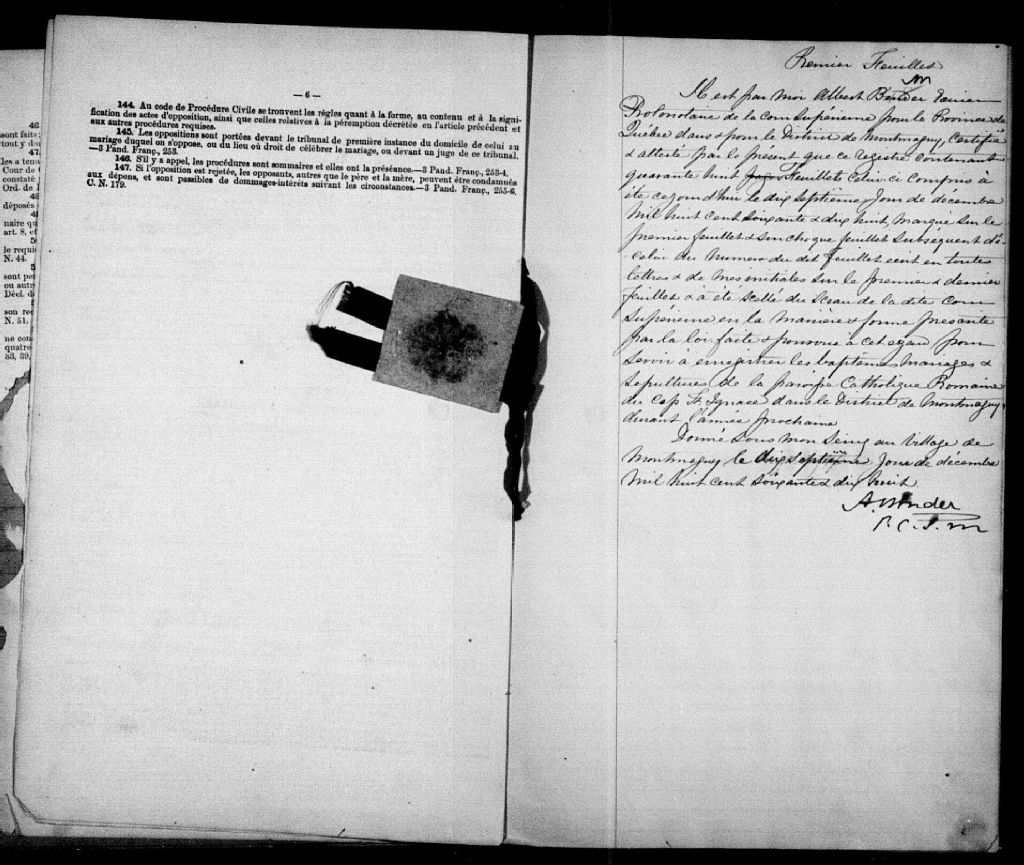 46
sont faits
tout y do
47.
les a tenu
Cour de
constaté
Ord. de
48
déposés
49
naire qu
art. 8, et
50
le requi
N. 44.
5
sont per
ou autr
Décl. d
son re
N. 51.
ne con
quatre
53, 39,
— 6 —
144. Au code de Procédure Civile se trouvent les règles quant à la forme, au contenu et à la signi-
fication des actes d'opposition, ainsi que celles relatives à la péremption décrétée en l'article précédent et
aux autres procédures requises.
145. Les oppositions sont portées devant le tribunal de première instance du domicile de celui au
mariage duquel on s'oppose, ou du lieu où droit de célébrer le mariage, ou devant un juge de ce tribunal.
—3 Pand. Franç., 253.
146. S'il y a appel, les procédures sont sommaires et elles ont la préséance.—3 Pand. Franç., 253-4.
147. Si l'opposition est rejetée, les opposants, autres que le père et la mère, peuvent être condamnés
aux dépens, et sont passibles de dommages-intérêts suivant les circonstances.—3 Pand. Franç., 255-6.
C. N. 179.
Premier Feuillet
Il est par moi Albert Bender Ecuier
Protonotaire de la Cour Supérieure pour la Province de
Québec dans & pour le District de Montmagny, Certifié
& attesté par le présent que ce Registre contenant
quarante huit feuillets celui ci compris à
été cejourd'hui le dix septième Jour de décembre
Mil huit cent soixante & dix huit, marqué sur le
premier feuillet & sur chaque feuillet subséquent de
celui du numéro du dit feuillet écrit en toutes
lettres & de mes initiales sur le premier & dernier
feuillet & à été scellé du Sceau de la dite Cour
Supérieure en la manière & forme prescrite
par la loi faite & pourvue a cet égard pour
servir à enregistrer les baptêmes mariages &
sepultures de la paroisse Catholique Romaine
du Cap St. Ignace dans le District de Montmagny,
durant l'année prochaine
Donné sous mon Seing au Village de
Montmagny le dix septième Jour de décembre
Mil huit cent soixante & dix huit.
A. Bender
P. C. S. M